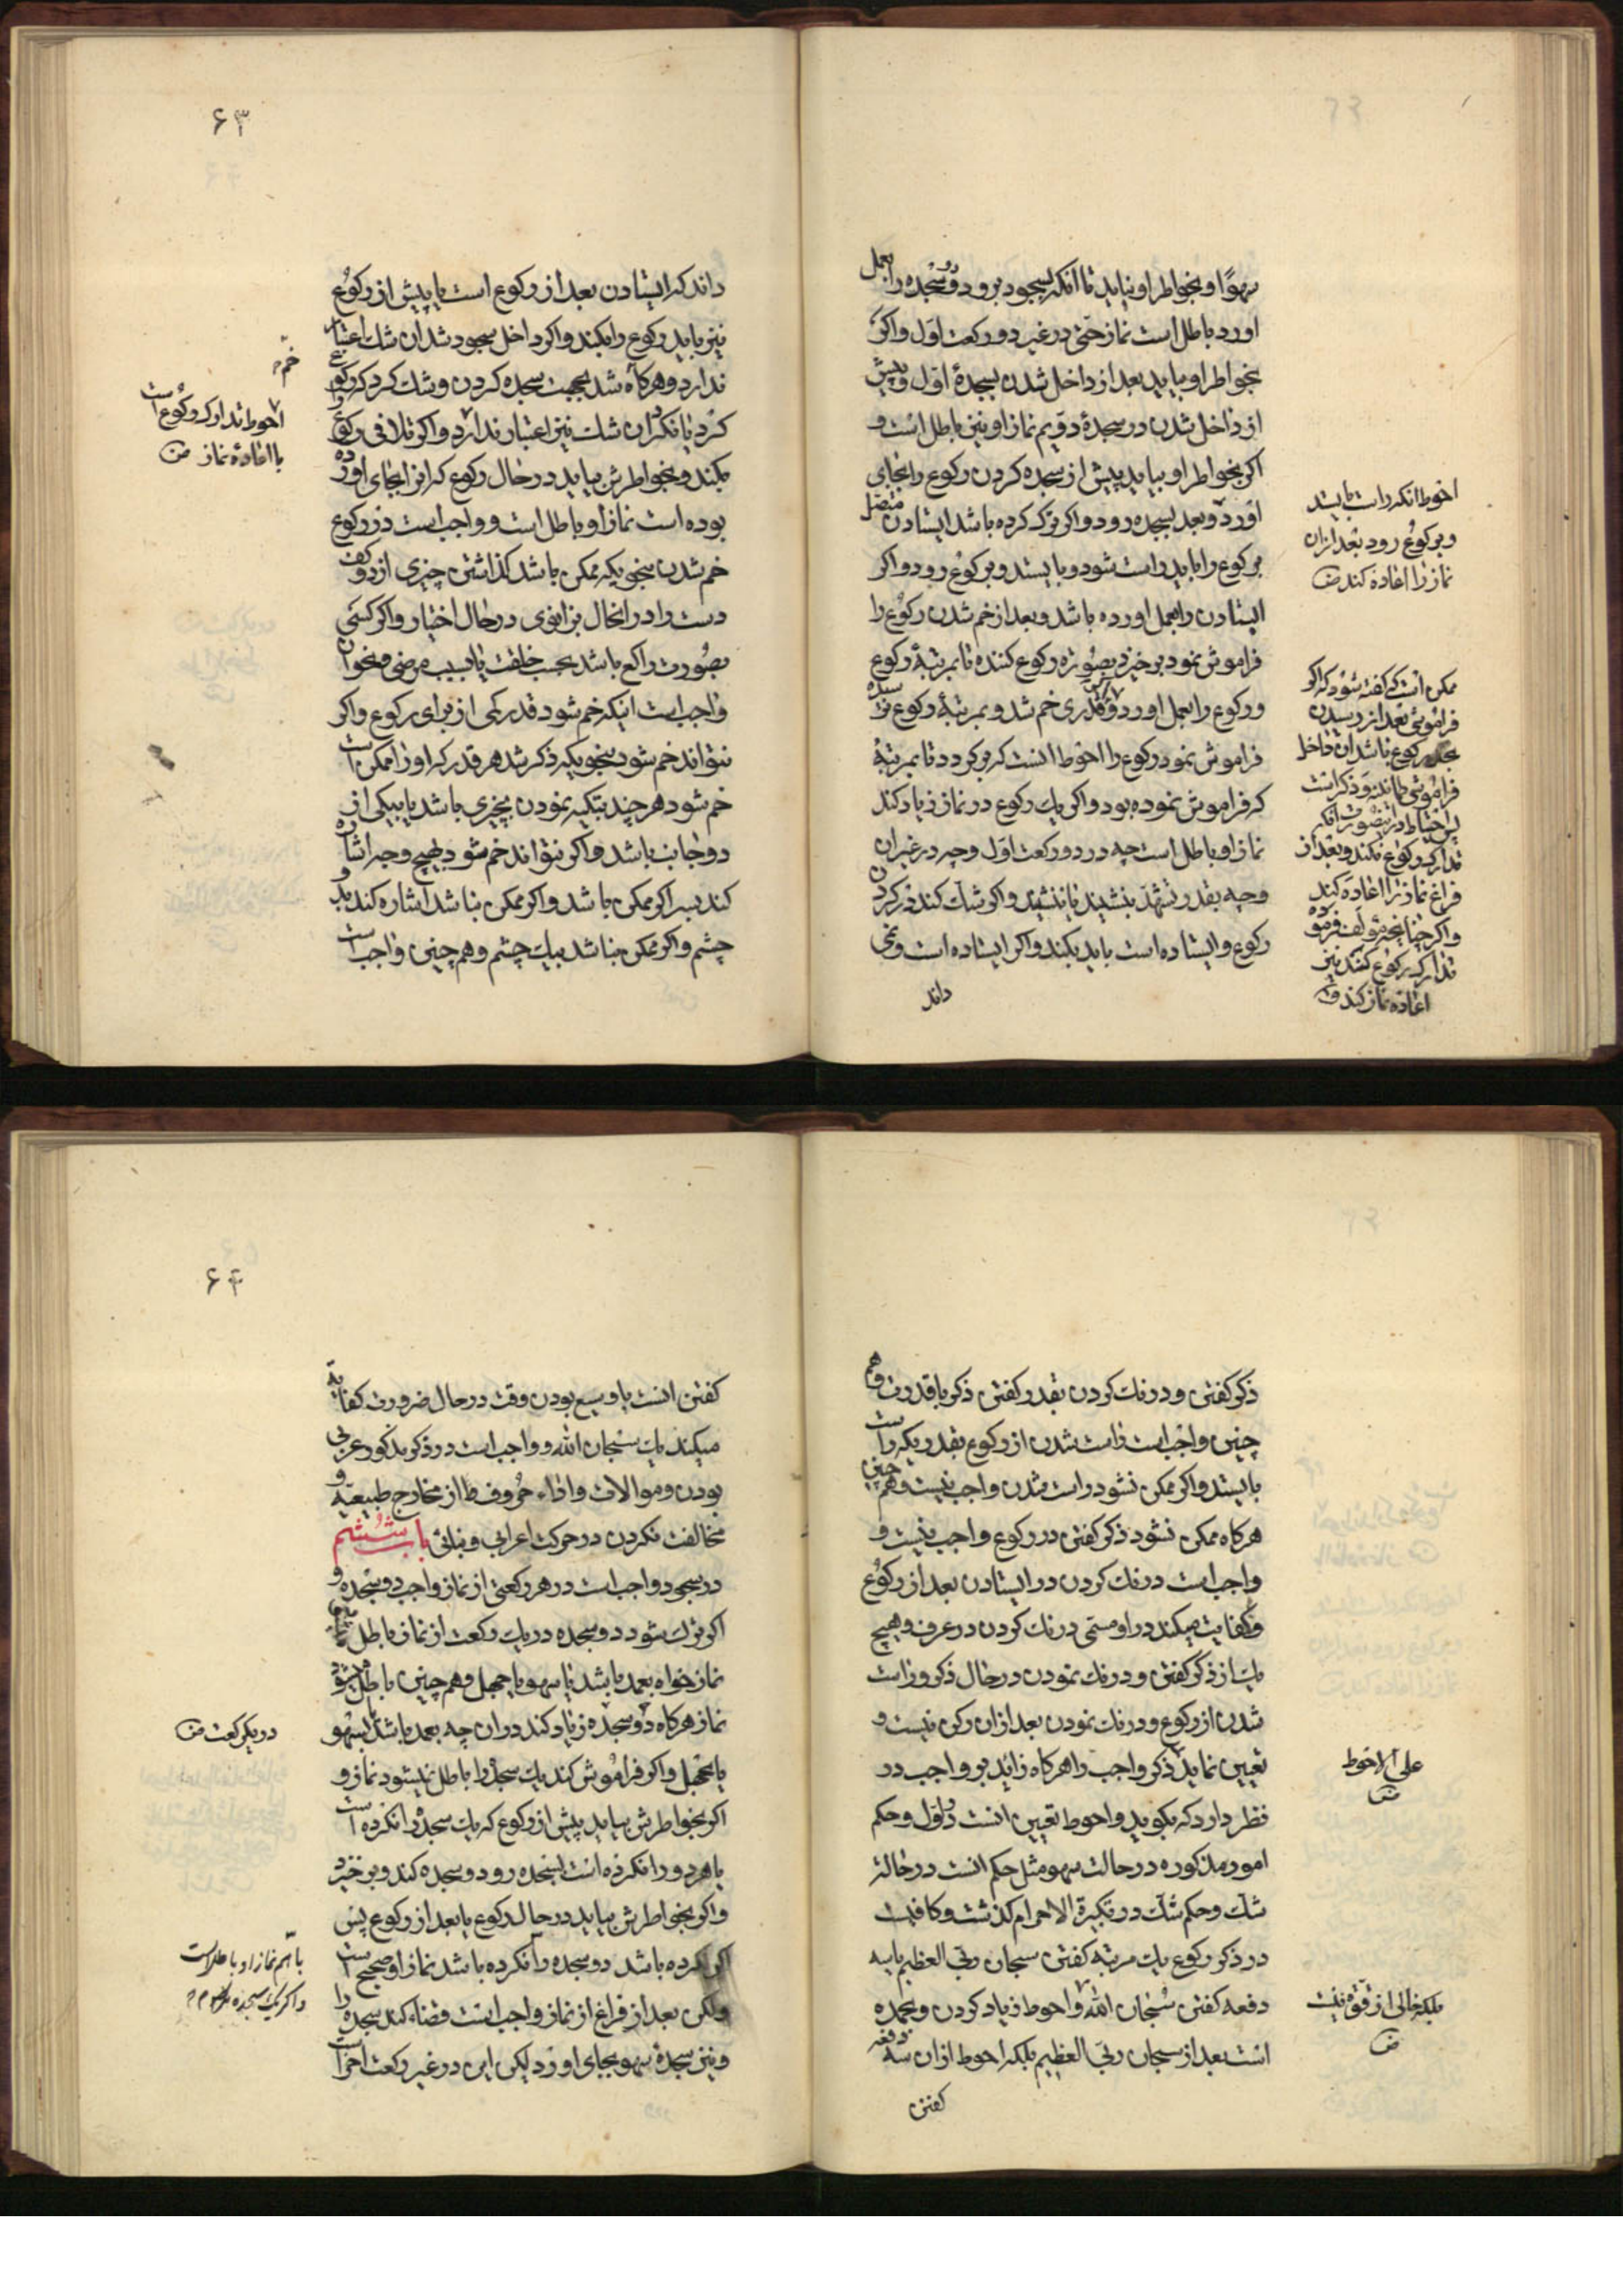 سهوًا و بخواطر او نیاید تا انکه بسجود برود و دو سجده را بعمل
اورد باطل است نماز حتی در غیر دو رکعت اول و اکر
بخواطر او بیاید بعد از داخل شدن بسجدۀ اول و پیش
از داخل شدن در سجدۀ دویم نماز او نیز باطل است و
اکر بخواطر او بیاید پیش از سجده کردن رکوع را بجای
اورد و بعد بسجده رود و اکر ترک کرده باشد ایستادن متصل
برکوع را باید راست شود و بایستد و برکوع رود و اکر
ایستادن را بعمل اورده باشد و بعد از خم شدن رکوع را
فراموش نمود برخیزد بصورة رکوع کننده تا بمرتبۀ رکوع
و رکوع را بعمل اورد و اکر قدری خم شد و بمرتبۀ رکوع نرسیده
فراموش نمود رکوع را احوط انست که برکردد تا بمرتبۀ
که فراموش نموده بود و اکر یک رکوع در نماز زیاد کند
نماز او باطل است چه در دو رکعت اول و چه در غیر ان
و چه بقدر تشهد بنشیند یا ننشیند و اکر شک کند در کردن
رکوع و ایستاده است باید بکند و اکر ایستاده است و نمی
داند
احوط انکه راست بایستد
و برکوع رود بعد از ان
نماز را اعاده کند ض
ممکن است که کفته شود که اکر
فراموشی بعد از رسیدن
بحد رکوع باشد ان داخل
فراموشی
پس احتیاط در اینصورت انکه
تدارک رکوع نکند و بعد از
فراغ نماز را اعاده کند
و اکر چنانچه مؤلف فرموده
تدارک رکوع کند نیز
اعاده نماز کند ض
۶۳
داند که ایستادن بعد از رکوع است یا پیش از رکوع
نیز باید رکوع را بکند و اکر داخل سجود شد ان شک اعتبار
ندارد و هرکاه شد بجهت سجده کردن و شک کرد که رکوع
کرد یا نکرد ان شک نیز اعتبار ندارد و اکر تلافی رکوع
بکند و بخواطرش بیاید در حال رکوع که انرا بجای اورده
بوده است نماز او باطل است و واجب است در رکوع
خم شدن بنحویکه ممکن باشد کذاشتن چیزی از دو کف
دست را در انحال بزانوی در حال اختیار و اکر کسی
بصورت راکع باشد بحسب خلقت یا بسبب مرضی و نحو ان
واجب است اینکه خم شود قدر کمی از برای رکوع و اکر
نتواند خم شود بنحویکه ذکر شد هر قدر که او را ممکن است
خم شود هر چند بتکیه نمودن بچیزی باشد یا بیکی از
دو جانب باشد و اکر نتواند خم شود بهیچ وجه اشاره
کند بسر اکر ممکن باشد و اکر ممکن نباشد اشاره کند بدو
چشم و اکر ممکن نباشد بیک چشم و هم چنین واجب است
خم
احوط تدارک رکوع است
با اعادۀ نماز ض
ذکر کفتن و درنک کردن بقدر کفتن ذکر با قدرت و هم
چنین واجب است راست شدن از رکوع بقدریکه راست
بایستد و اکر ممکن نشود راست شدن واجب نیست و هم چنین
هرکاه ممکن نشود ذکر کفتن در رکوع واجب نیست و
واجب است درنک کردن در ایستادن بعد از رکوع
و کفایت میکند در او مسمی درنک کردن در عرف و هیچ
یک از ذکر کفتن و درنک نمودن در حال ذکر و راست
شدن از رکوع و درنک نمودن بعد از ان رکن نیست و
تعیین نماید ذکر واجب را هرکاه زائد بر واجب در
نظر دارد که بکوید و احوط تعیین انست در اول و حکم
امور مذکوره در حالت سهو مثل حکم انست در حالة
شک و حکم شک در تکبیرة الاحرام کذشت و کافیست
در ذکر رکوع یک مرتبه کفتن سبحان ربی العظیم یا سه
دفعه کفتن سبحان الله و احوط زیاد کردن و بحمده
است بعد از سبحان ربی العظیم بلکه احوط از ان سه دفعه
کفتن
علی الاحوط
ض
بلکه خالی از قوة نیست
ض
۶۴
کفتن انست با وسیع بودن وقت در حال ضرورت کفایة
میکند یک سبحان الله و واجب است در ذکر مذکور عربی
بودن و موالات و اداء حروف را از مخارج طبیعیه و
مخالفت نکردن در حرکت اعرابی و بنائی باب ششم
در سجود واجب است در هر رکعتی از نماز واجب دو سجده و
اکر ترک شود دو سجده در یک رکعت از نماز باطل
نماز خواه بعمد باشد یا بسهو یا جهل و هم چنین باطل میشود
نماز هرکاه دو سجده زیاد کند در ان چه بعمد باشد یا بسهو
یا بجهل و اکر فراموش کند یک سجده را باطل نمیشود نماز و
اکر بخواطرش بیاید پیش از رکوع که یک سجده را نکرده است
یا هر دو را نکرده است بسجده رود و سجده کند و برخیزد
و اکر بخواطرش بیاید در حال رکوع یا بعد از رکوع پس
اکر کرده باشد دو سجده را نکرده باشد نماز او صحیح است
ولکن بعد از فراغ از نماز واجب است قضاء کند سجده را
و نیز سجدۀ سهو بجای اورد لیکن این در غیر رکعت اخر است
در یک رکعت ض
باهم نماز او باطل است
و اکر یک سجده